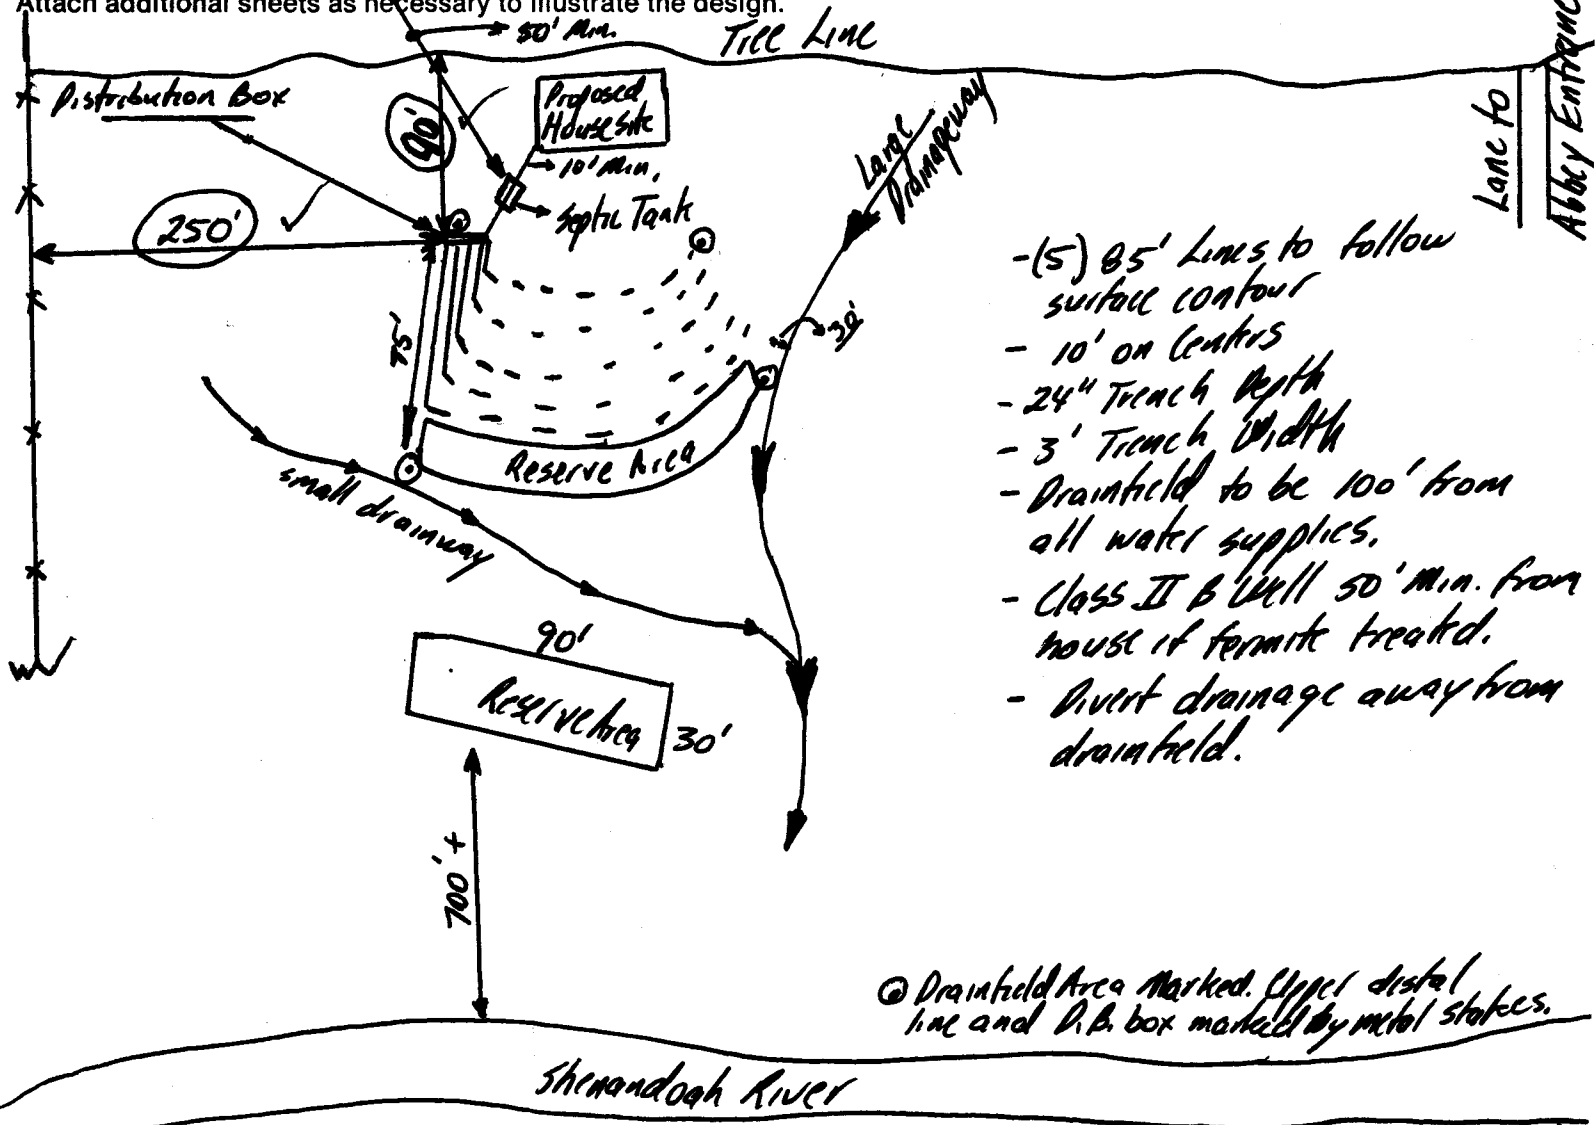 Attach additional sheets as necessary to illustrate the design.
50' Min.
Tree Line
Distribution Box
90'
Proposed
House Site
10' Min.
Septic Tank
250'
Large
Drainageway
Lane to
Abbey Entrance
75'
30'
Reserve Area
small drainway
90'
Reserve Area
30'
700'+
-(5) 85' Lines to follow
surface contour
- 10' on Centers
- 24" Trench Depth
- 3' Trench Width
- Drainfield to be 100' from
all water supplies.
- Class II B Well 50' Min. from
house if termite treated.
- Divert drainage away from
drainfield.
Drainfield Area Marked. Upper distal
line and D.B. box marked by metal stakes.
Shenandoah River